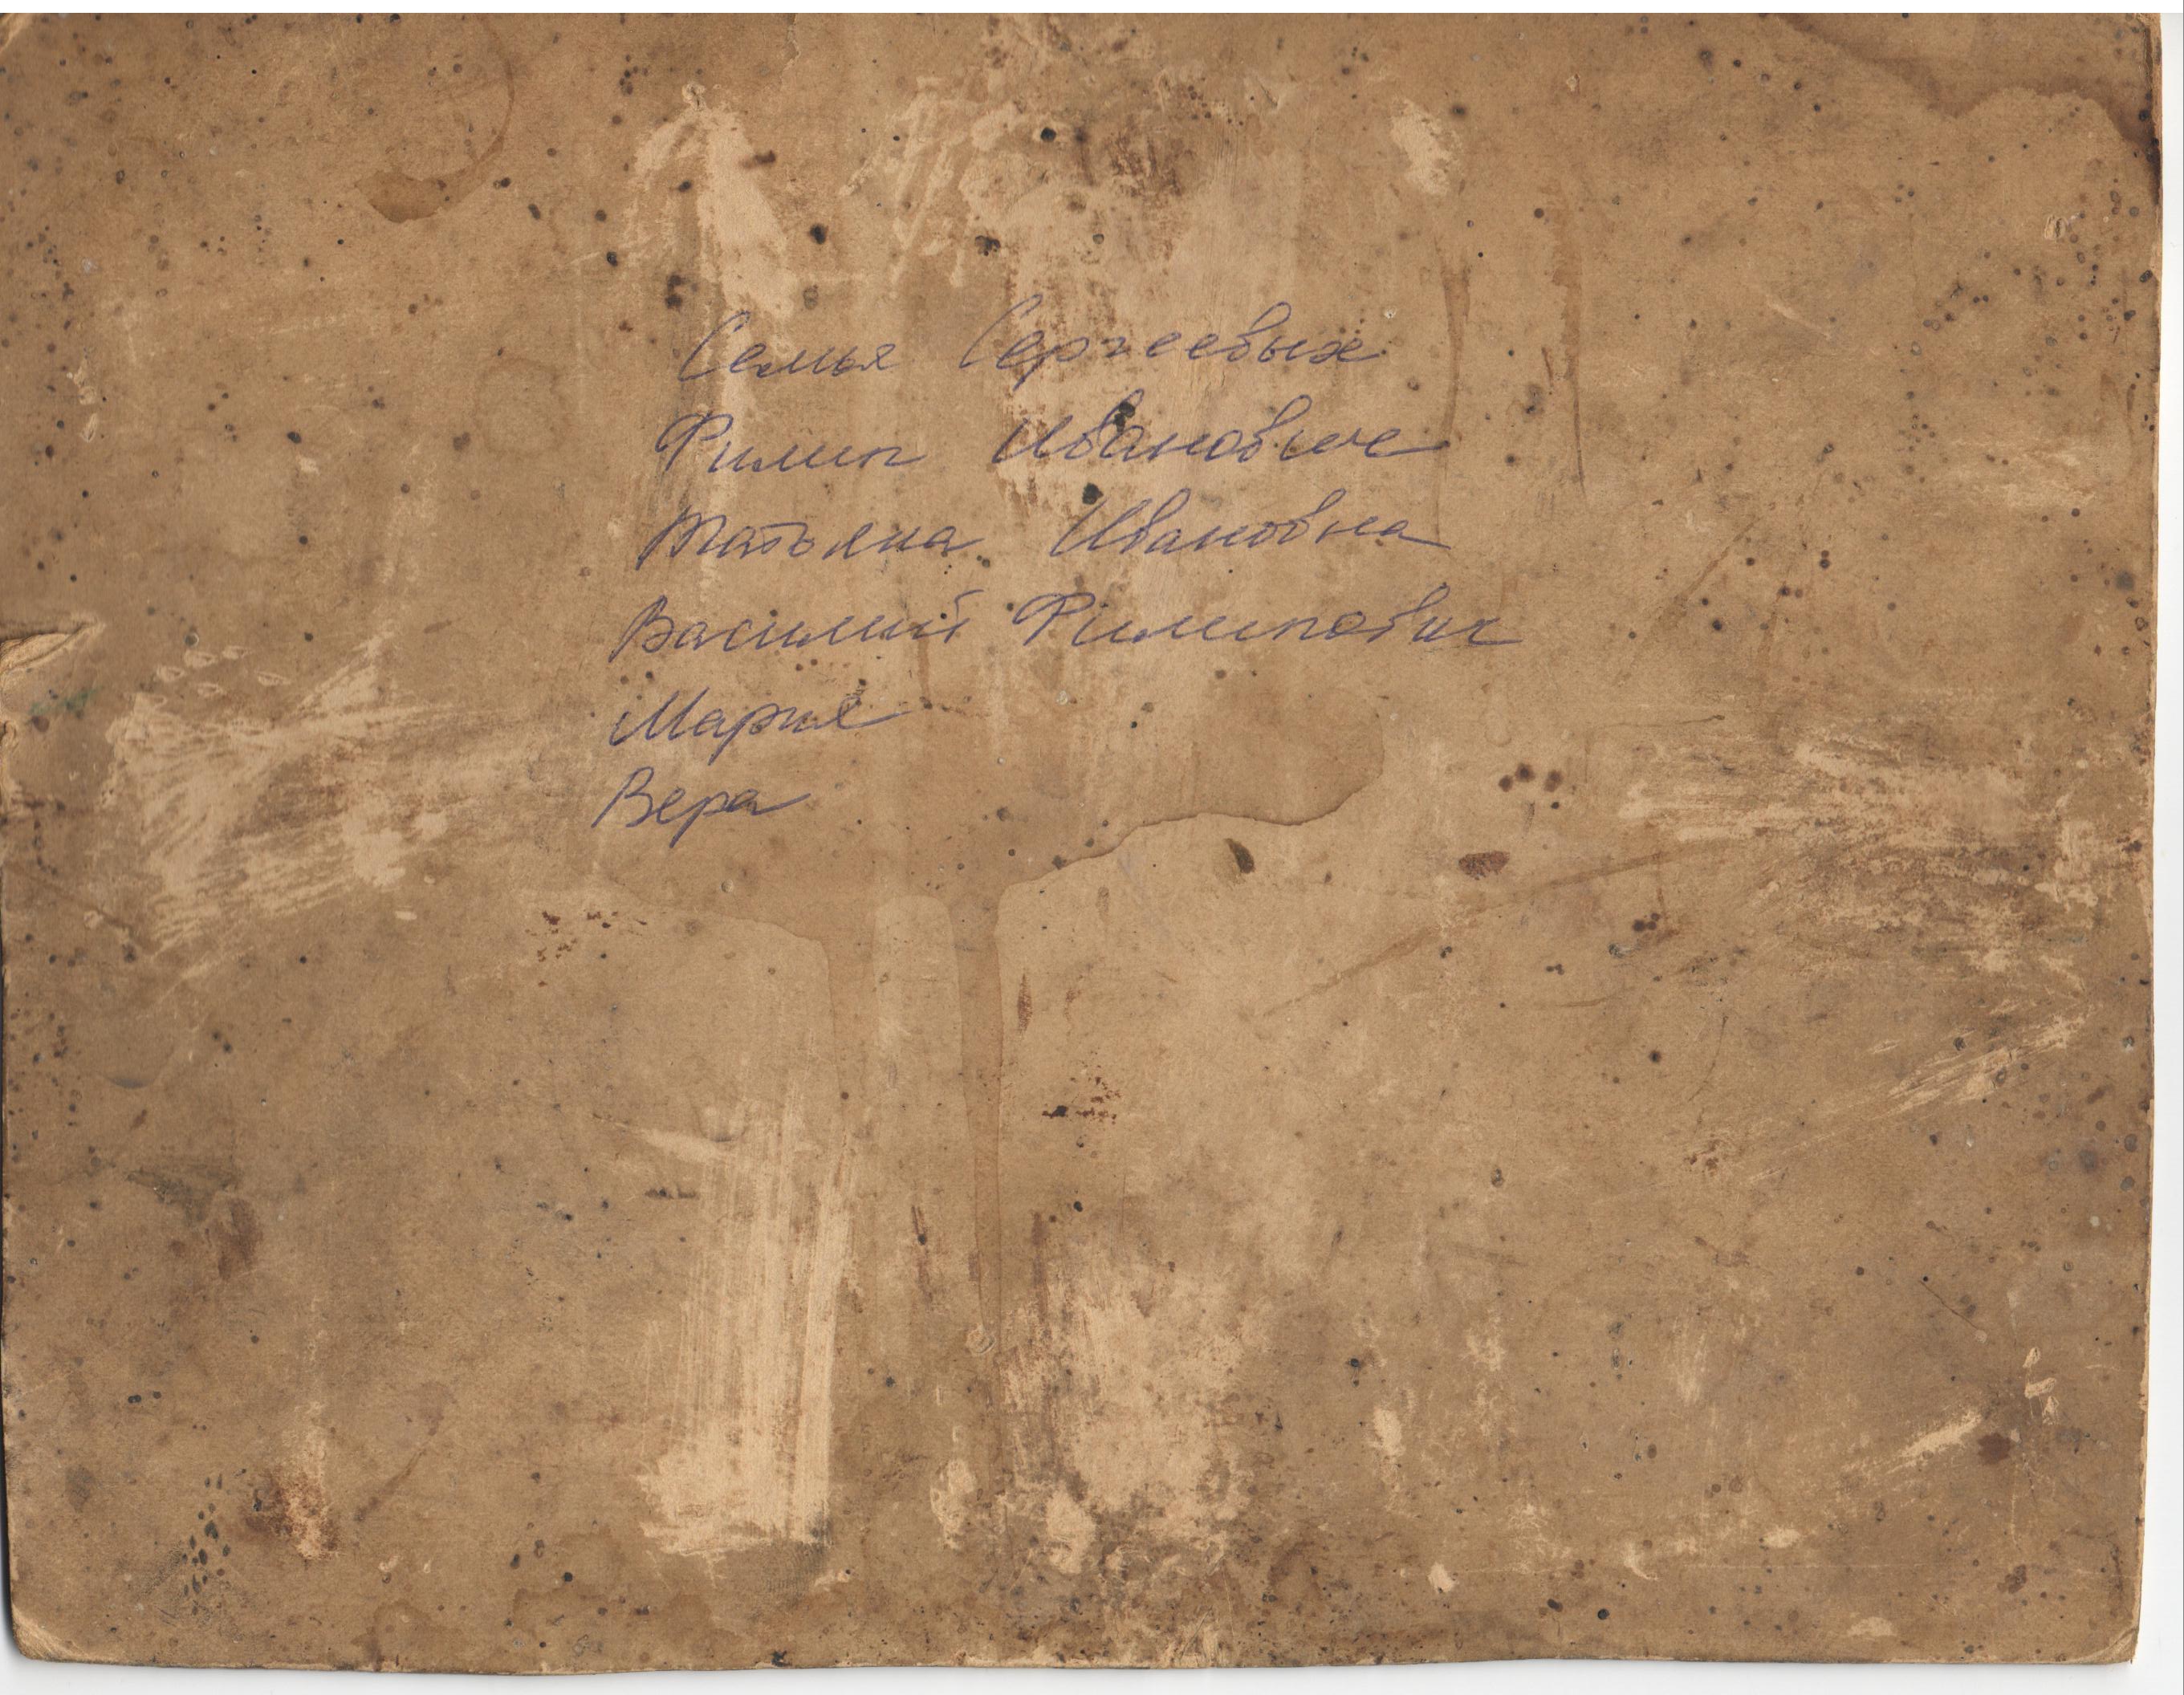 Семья Сергеевых
Филип Иванович
Татьяна Ивановна
Василий Филипович
Мария
Вера